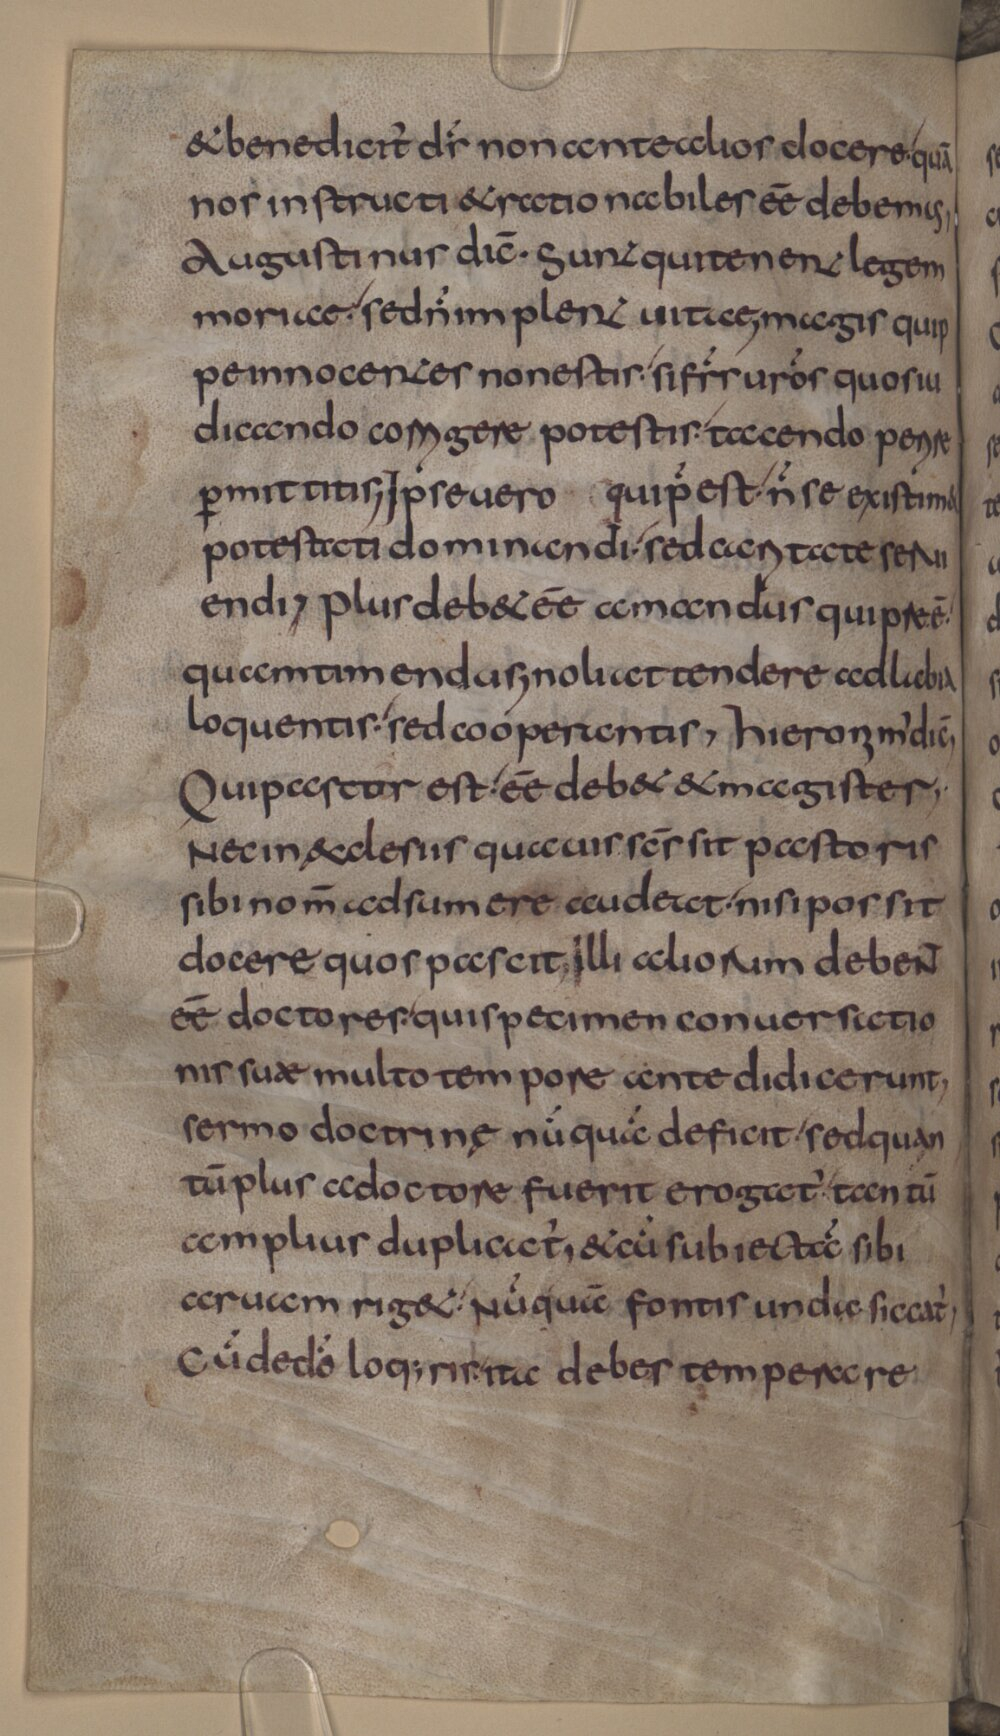 &benedicit̉ dr̃ non ante alios docere· quā
nos instructi & rationabiles eē debemus,
Augustinus dic̄· Sunt qui tenent legem
moriae· sed ñ implent uitae, magis quip
pe innocentes non estis· si fr̃s uros quos iu
dicando corrigere potestis· tacendo perire
ꝑmittitis, Ipse uero qui p̉est· ñ se existim&
potestati dominandi· sed caritate serui
endi, Plus deb& eē amandus qui preē·
quam timendus, noli attendere ad labia
loquentis· sed cooperantis, hieronim̉ dic̄,
Qui pastor est· eē deb& & magister,
Nec in &clesiis quauis sc̄s sit pastoris
sibi nom̄ adsumere audeat· nisi possit
docere quos pascit, Illi aliorum debeN̄
eē doctores· qui specimen conuersatio
nis suæ multo tempore ante didicerunt,
sermo doctrinę nūquā deficit· sed quan
tū plus a doctore fuerit erogat̉· tantū
amplius duplicat̉, & cū subiectā sibi
aruam rig&· Nūquā fontis unda siccat̉,
Cū de dõ loq;ris· ita debes temperare